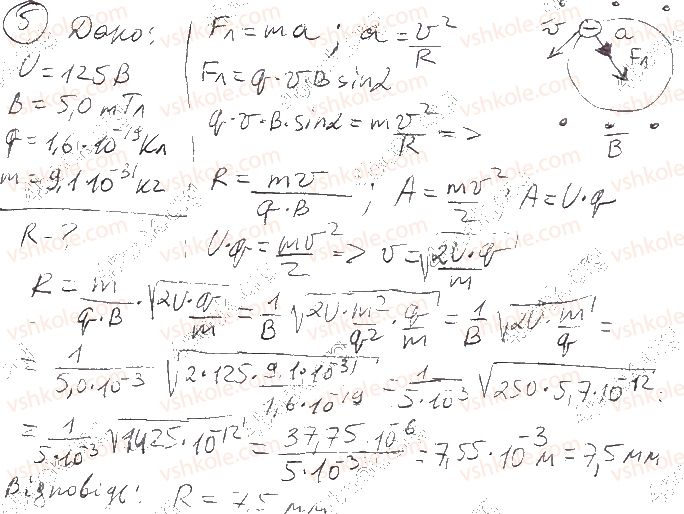 5 Дано:
U = 125 В
B = 5,0 mТл
q = 1,6·10⁻¹⁹ Кл
m = 9,1·10⁻³¹ кг
R - ?
Fл = ma; a = v²/R
Fл = q·vB sinα
q·v·B·sinα = m v²/R =>
R = mv/(q·B); A = mv²/2; A = U·q
U·q = mv²/2 => v = √(2U·q/m)
v a Fл
B
R = m/(q·B) · √(2U·q/m) = 1/B √(2U·m²/q²·q/m) = 1/B √(2U·m/q) =
= 1/(5,0·10⁻³) √(2·125·9,1·10⁻³¹/(1,6·10⁻¹⁹)) = 1/(5·10³) √(250·5,7·10⁻¹²)
= 1/(5·10⁻³) √(1425·10⁻¹²) = 37,75·10⁻⁶/(5·10⁻³) = 7,55·10⁻³ м = 7,5 мм
Відповідь: R = 7,5 мм